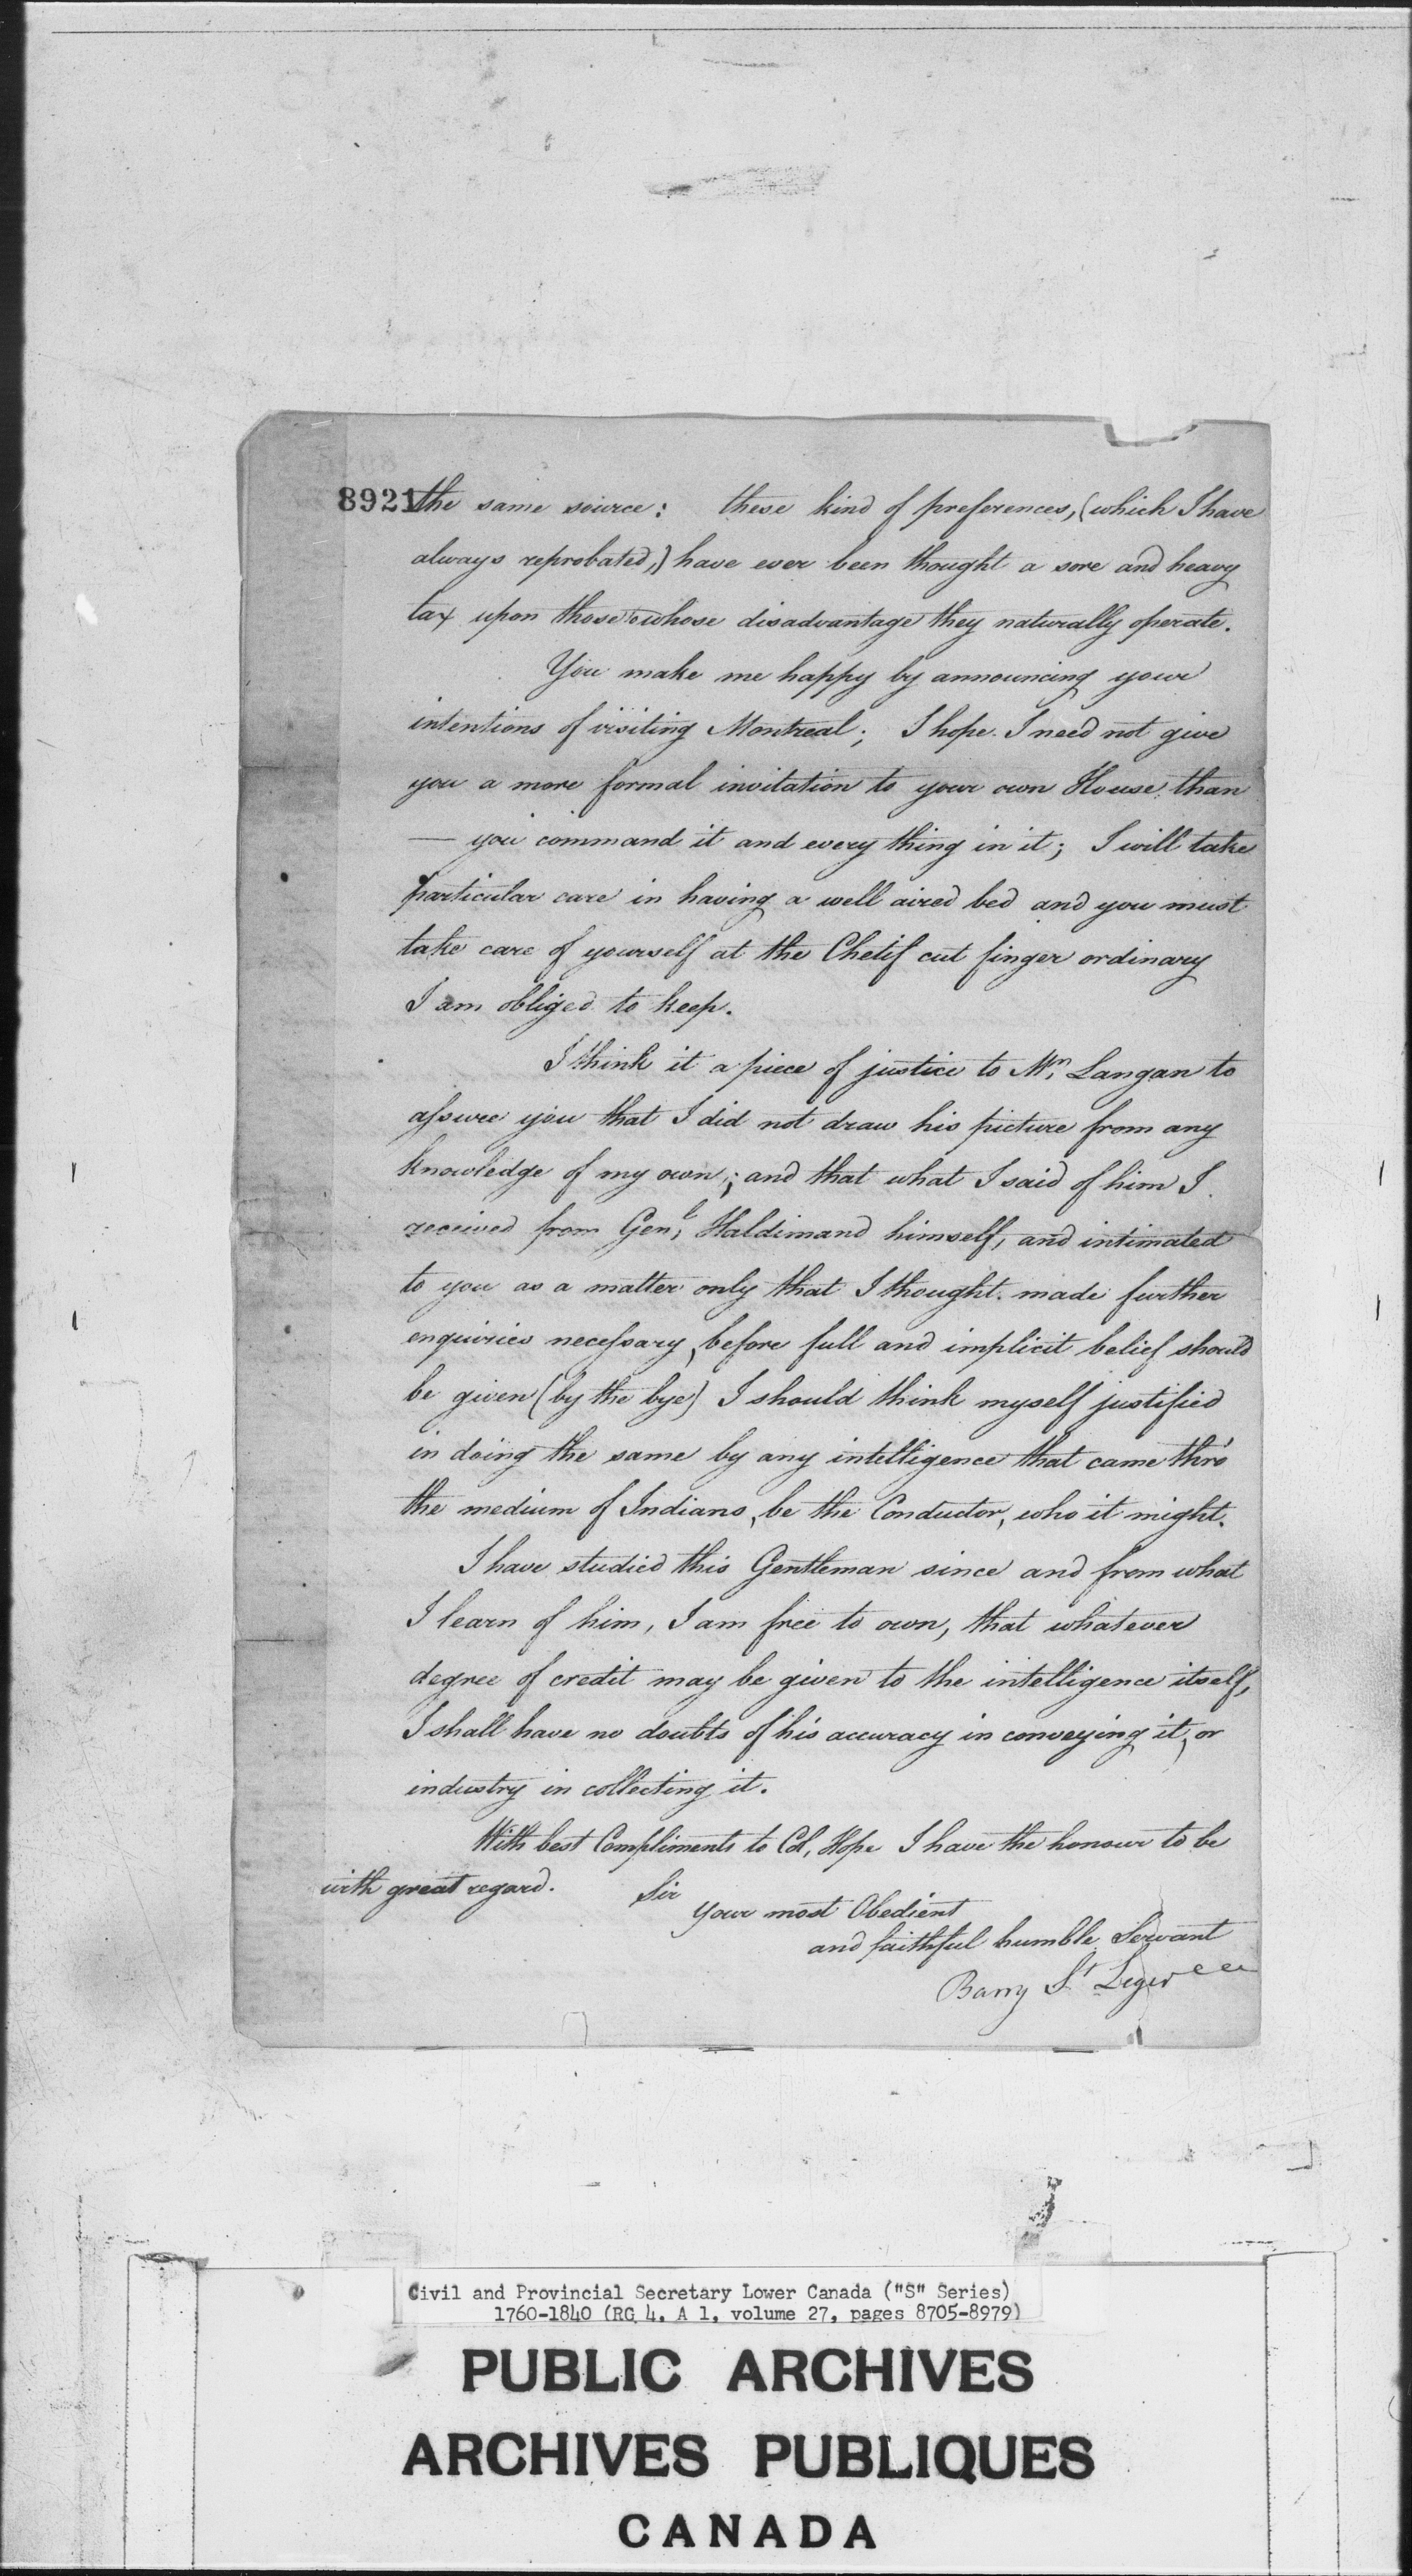 8921 the same source: these kind of preferences, (which I have
always reprobated,) have ever been thought a sore and heavy
tax upon those to whose disadvantage they naturally operate.
You make me happy by announcing your
intentions of visiting Montreal; I hope I need not give
you a more formal invitation to your own House than
— you command it and every thing in it; I will take
particular care in having a well aired bed and you must
take care of yourself at the Chetif cut finger ordinary
I am obliged to keep.
I think it a piece of justice to Mr. Langan to
assure you that I did not draw his picture from any
knowledge of my own; and that what I said of him I
received from Genl. Haldimand himself, and intimated
to you as a matter only that I thought made further
enquiries necessary, before full and implicit belief should
be given (by the bye) I should think myself justified
in doing the same by any intelligence that came thro'
the medium of Indians, be the Conductor, who it might.
I have studied this Gentleman since and from what
I learn of him, I am free to own, that whatever
degree of credit may be given to the intelligence itself,
I shall have no doubts of his accuracy in conveying it, or
industry in collecting it.
With best Compliments to Col. Hope I have the honour to be
with great regard. Sir
Your most Obedient
and faithful humble Servant
Barry St Leger
Civil and Provincial Secretary Lower Canada ("S" Series)
1760-1840 (RG 4, A 1, volume 27, pages 8705-8979)
PUBLIC ARCHIVES
ARCHIVES PUBLIQUES
CANADA